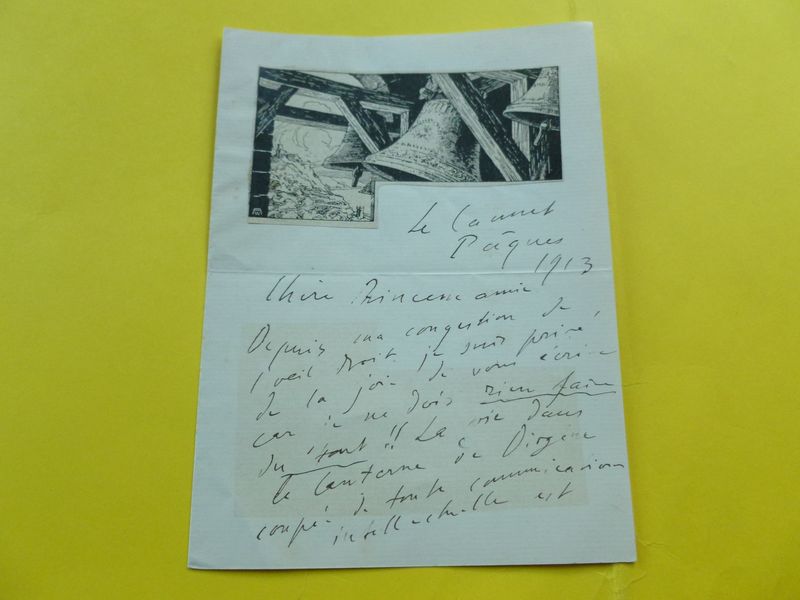 Le Cannet
Pâques
1913
Chère Princesse amie
Depuis ma congestion de
l'oeil droit je suis privé
de la joie de vous écrire
car je ne dois rien faire
du tout !! La vie dans
la lanterne de Diogène
coupée de toute communication
intellectuelle est